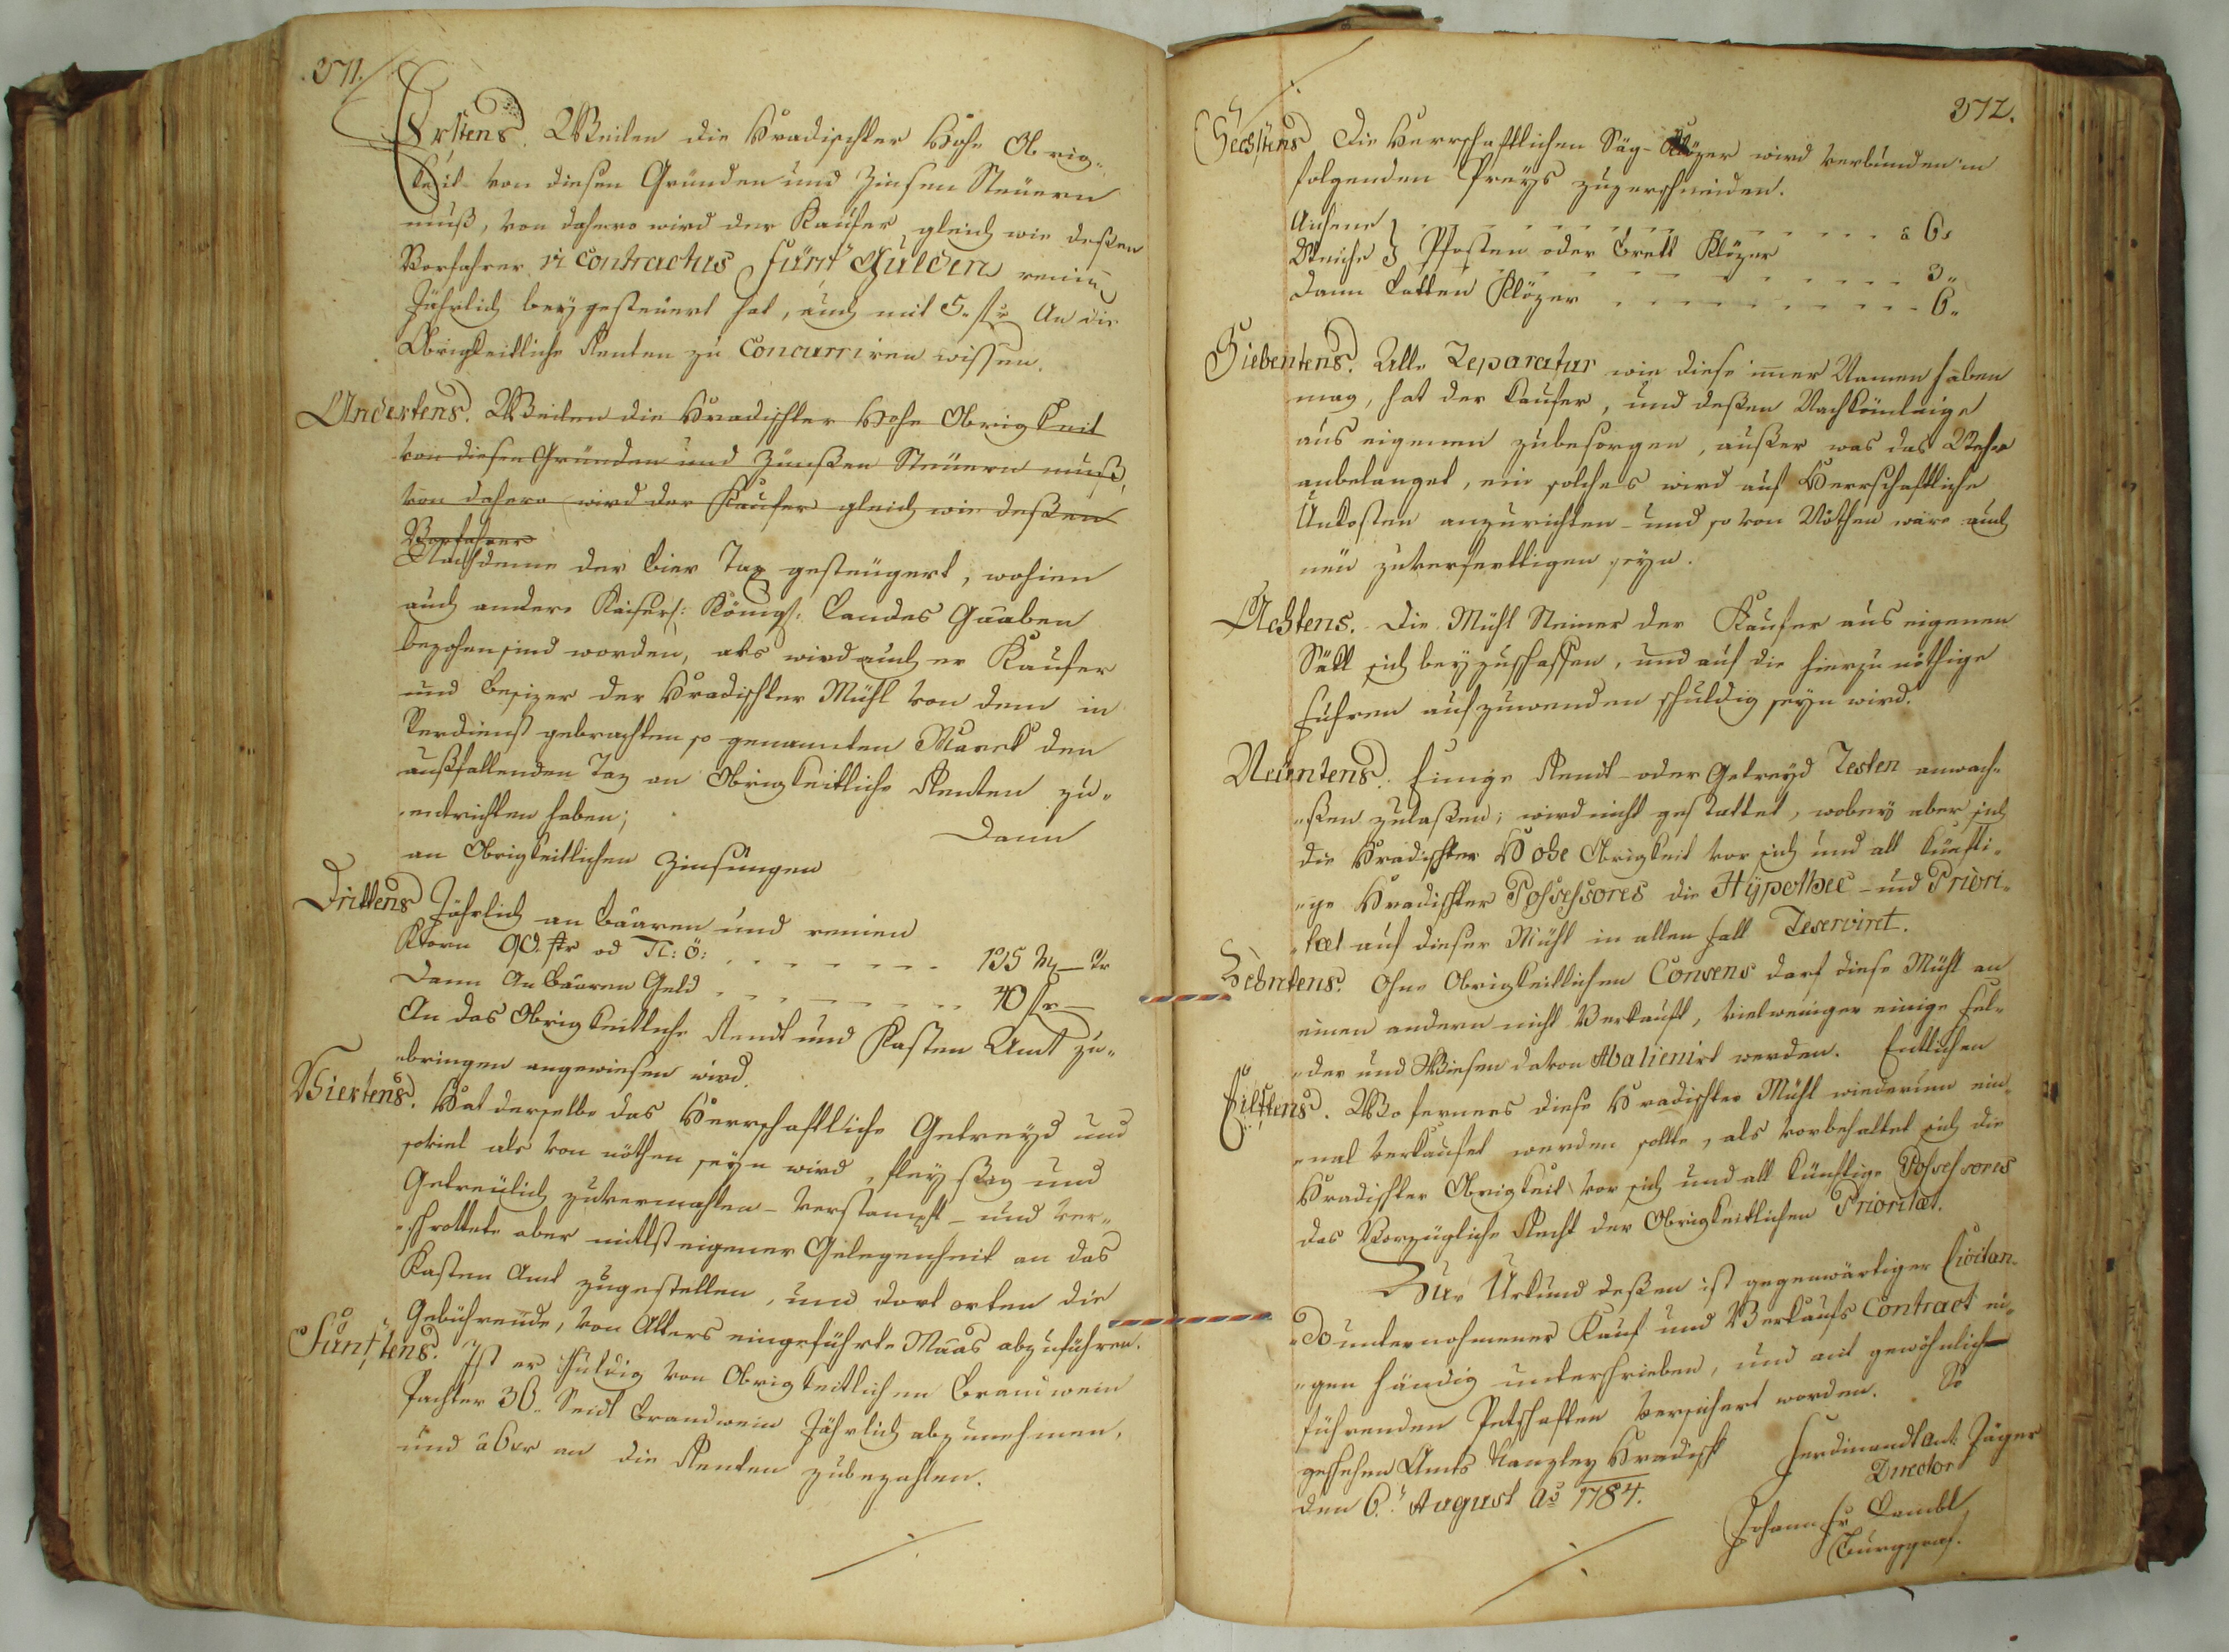 371.
Erstens. Weilen die Hradischter Hohe Obrig-
keit von diesen Gründen und Zinsen Steüern
muß, von dahero wird der Kaufer gleich wie deßen
Vorfahrer vi contractus fünf Gulden
Jährlich beygesteüert hat, auch mit 5. fl An die
Obrigkeitliche Renten zu Concurriren wissen.
Andertens. Weilen die Hradischter Hohe Obrigkeit
von diesen Gründen und Zinnßen Steüern muß,
von dahero wird der Kaufer gleich wie deßen
Vorfahrer
Nachdeme der Bier Tax gesteügert, wohien
auch andere Kaiserl: Königl: Landes Gaaben
bezohen sind worden, als wird auch er Kaufer
und Besizer der Hradischter Mühl von dem in
Verdienst gebrachten so genannten den
außfallenden Taz an Obrigkeitliche Renten zu-
entrichten haben;
Dann
an Obrigkeitlichen Zinsungen
Drittens Jährlich an Baaren und reinen
Korn 90. str od N: ö: . . . . . . . 195
Dann An Baaren Geld . . . . . . . . 40 fl —
An das Obrigkeitliche Rendt und Kasten Amt zu-
bringen angewiesen wird.
Viertens. Hat derselbe das Herrschaftliche Getreyd und
soviel als von nöthen seyn wird, fleyßig und
Getreülich zuvermahlen - verstampft - und ver-
schrottete aber mittlst eigener Gelegenheit an das
Kasten Amt zugestellen, und dort orten die
Gebührende, von Alters eingeführte Maas abzuführen.
Fünftens. Ist er schuldig von Obrigkeitlichen Brandwein
Pachter 36. Seidl Brandwein Jährlich abzunehmen,
und à 6xr an die Renten zubezahlen.
372.
Sechstens Die Herrschaftlichen Säg-Klözer wird verbunden in
folgenden Preys zuzerschneiden.
. . . . . . . . . . à 6.
Weiche } Pfosten oder Brett Klözer
. . . . . . . . . . 3"
Dann Latten Klözer . . . . . . . . . . 6"
Siebentens. Alle Reparatur wie diese imer Namen haben
mag, hat der Kaufer, und deßen Nachkömlinge
aus eigenen zubesorgen, außer was das Wehr
anbelanget, ein solches wird auf Herrschaftliche
Unkosten anzurichten - und so von Nöthen wäre auch
neü zuverfertigen seyn.
Achtens. Die Mühl Steiner der Kaufer aus eigenen
Säkl sich beyzuschaffen, und auf die hierzu nöthige
Fuhren aufzuwenden schuldig seyn wird.
Neüntens. Einige Rendt- oder Getreyd Resten anwach-
"ßen zulaßen; wird nicht gestattet, wobey aber sich
die Hradischter Hohe Obrigkeit vor sich und all künfti-
"ge Hradischter Possessores die Hypothec- und Priori-
"tæt auf dieser Mühl in allen fall Reserviret.
Zehntens. Ohne Obrigkeitlichen Consens darf diese Mühl an
einen andern nicht Verkauft, vielweniger einige Fel-
"der und Wiesen davon Abalienirt werden. Entlichen
Eilftens. Wo ferners diese Hradischter Mühl wiederum ein-
"mal verkaufet werden sollte, als vorbehaltet sich die
Hradischter Obrigkeit vor sich und all künftige Possessores
das Vorzügliche Recht der Obrigkeitlichen Prioritæt.
Zur Urkund deßen ist gegenwärtiger Licitan-
"do unternohmener Kauf und Verkaufs Contract ei-
"gen händig unterschrieben, und mit gewöhnlich
führenden Petschaften versichert worden. So
geschehen Amts Kanzley Hradischt
den 6.t August Ao 1784.
Ferdinandt Ant: Jäger
Director
Johann
Burggraf.